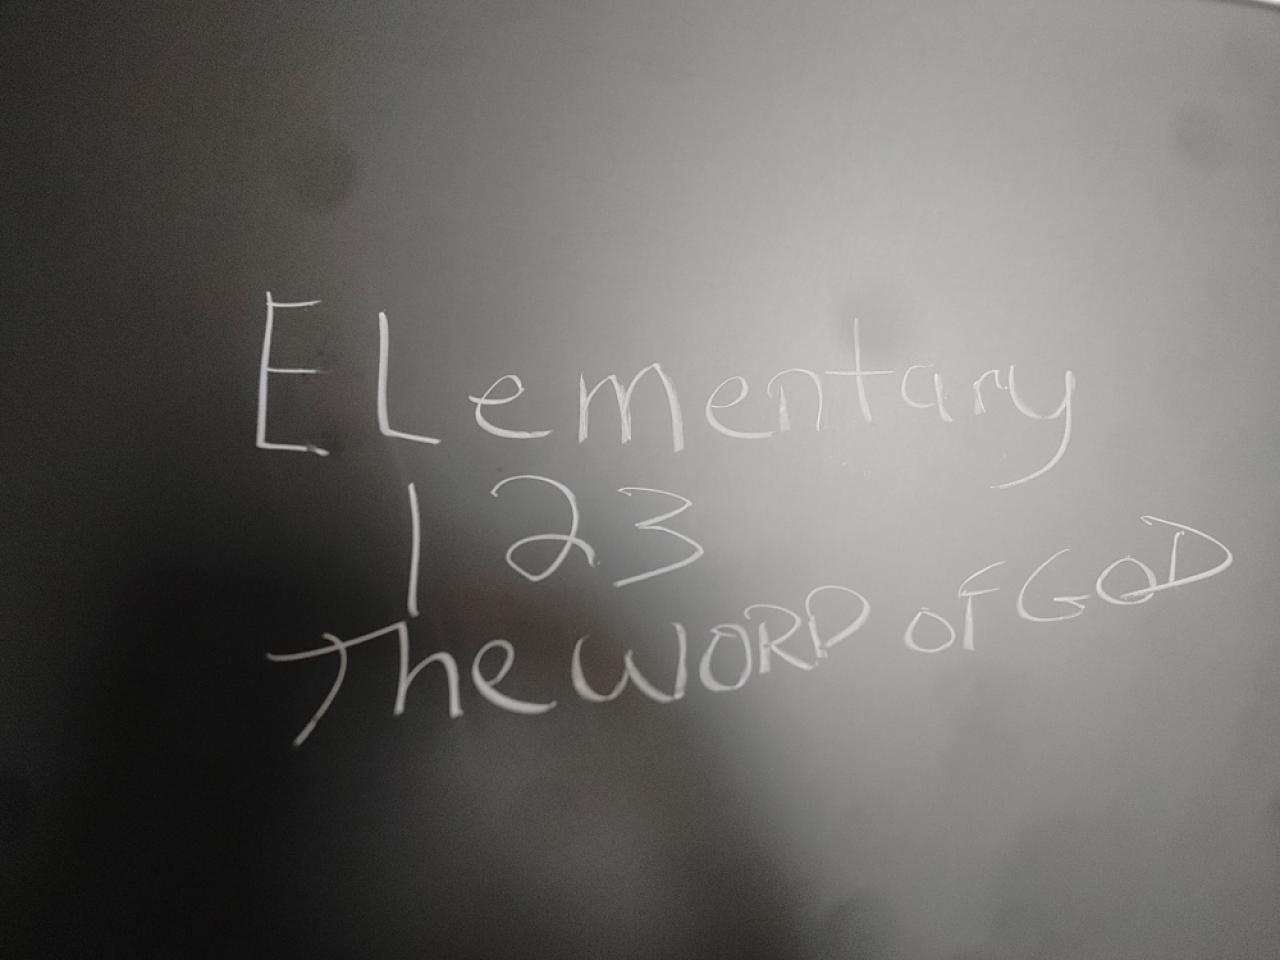 ELementary
1 2 3
The WORD of GOD